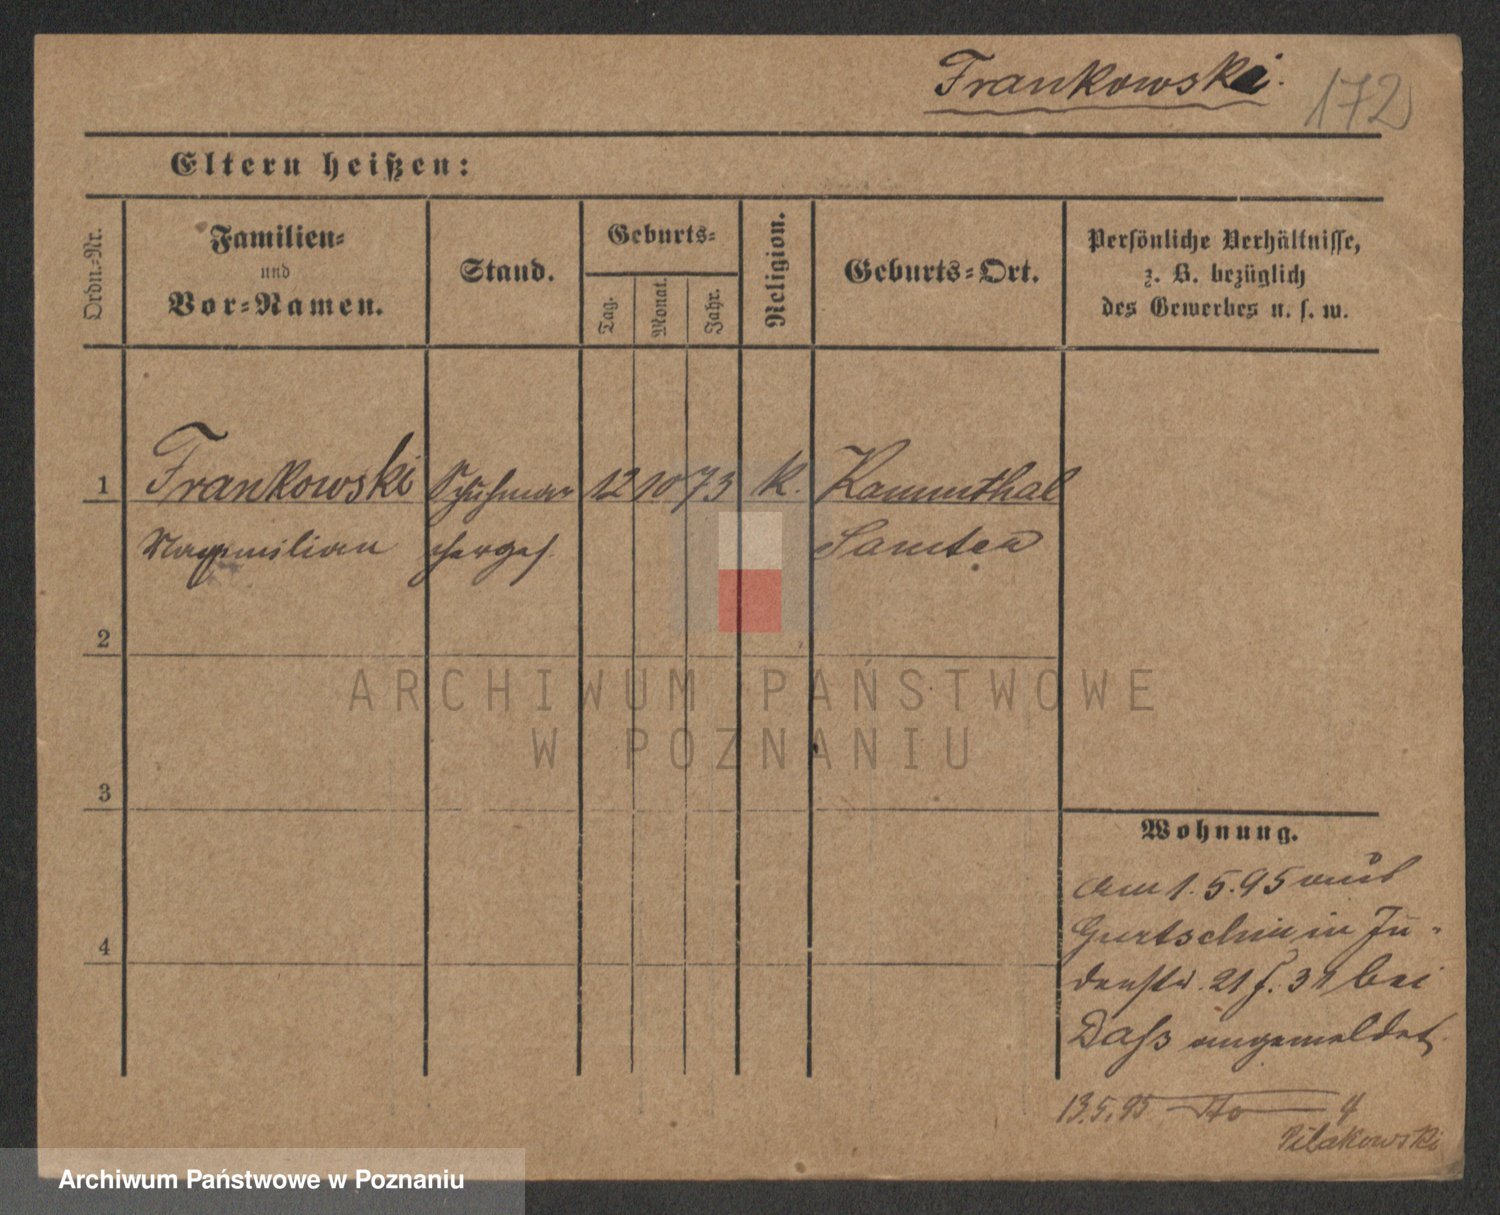 Frankowski.
172
Eltern heißen:
Ordn.-Nr.
Familien-
und
Vor-Namen.
Stand.
Geburts-
Tag.
Monat.
Jahr.
Religion.
Geburts-Ort.
Persönliche Verhältnisse,
z. B. bezüglich
des Gewerbes u. s. w.
1 Frankowski Schuhma 12 10 73 k. Kammthal
Maxmilian cherges. Samter
2
ARCHIWUM PAŃSTWOWE
W POZNANIU
3
Wohnung.
Am 1.5.95 aus
Gurtschin in Ju-
4
denstr. 21 f. 31 bei
Dass angemeldet
13.5.95 Ho 4
Pilakowski
Archiwum Państwowe w Poznaniu